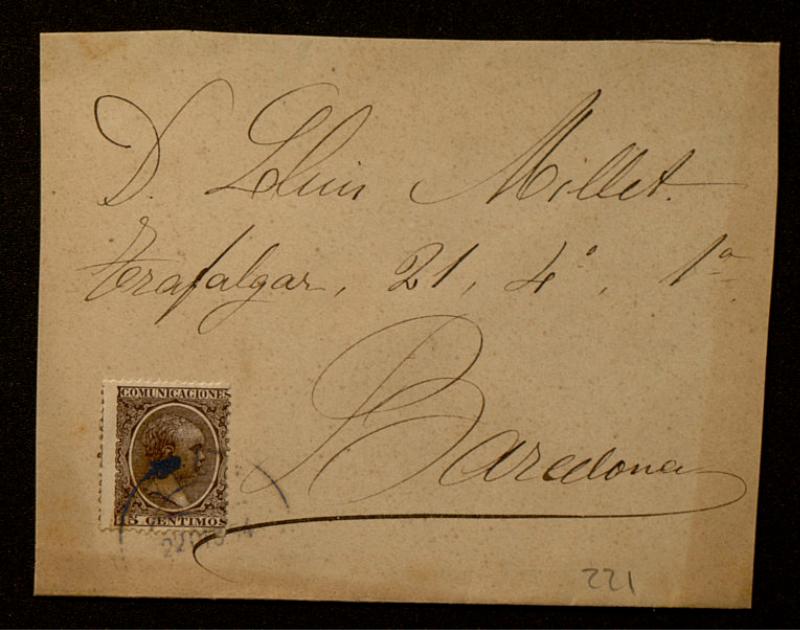 D. Lluis Millet.
Trafalgar, 21, 4º, 1ª
Barcelona
COMUNICACIONES
15 CENTIMOS
221